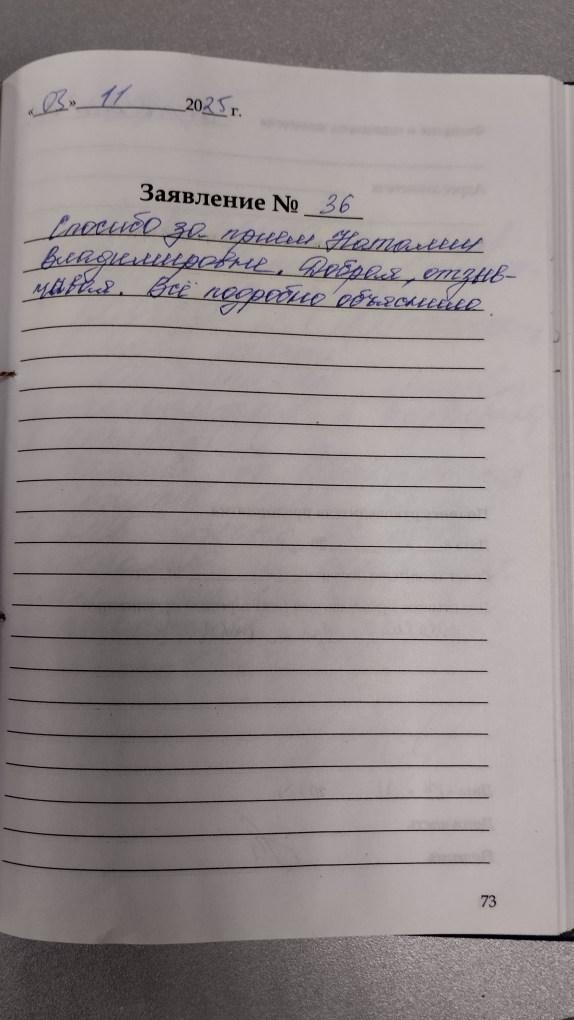 «03» 11 2025 г.
Заявление № 36
Спосибо за прием Наталии
Владимировне. Добрая, отзыв-
чивая. Всё подробно объяснила.
73